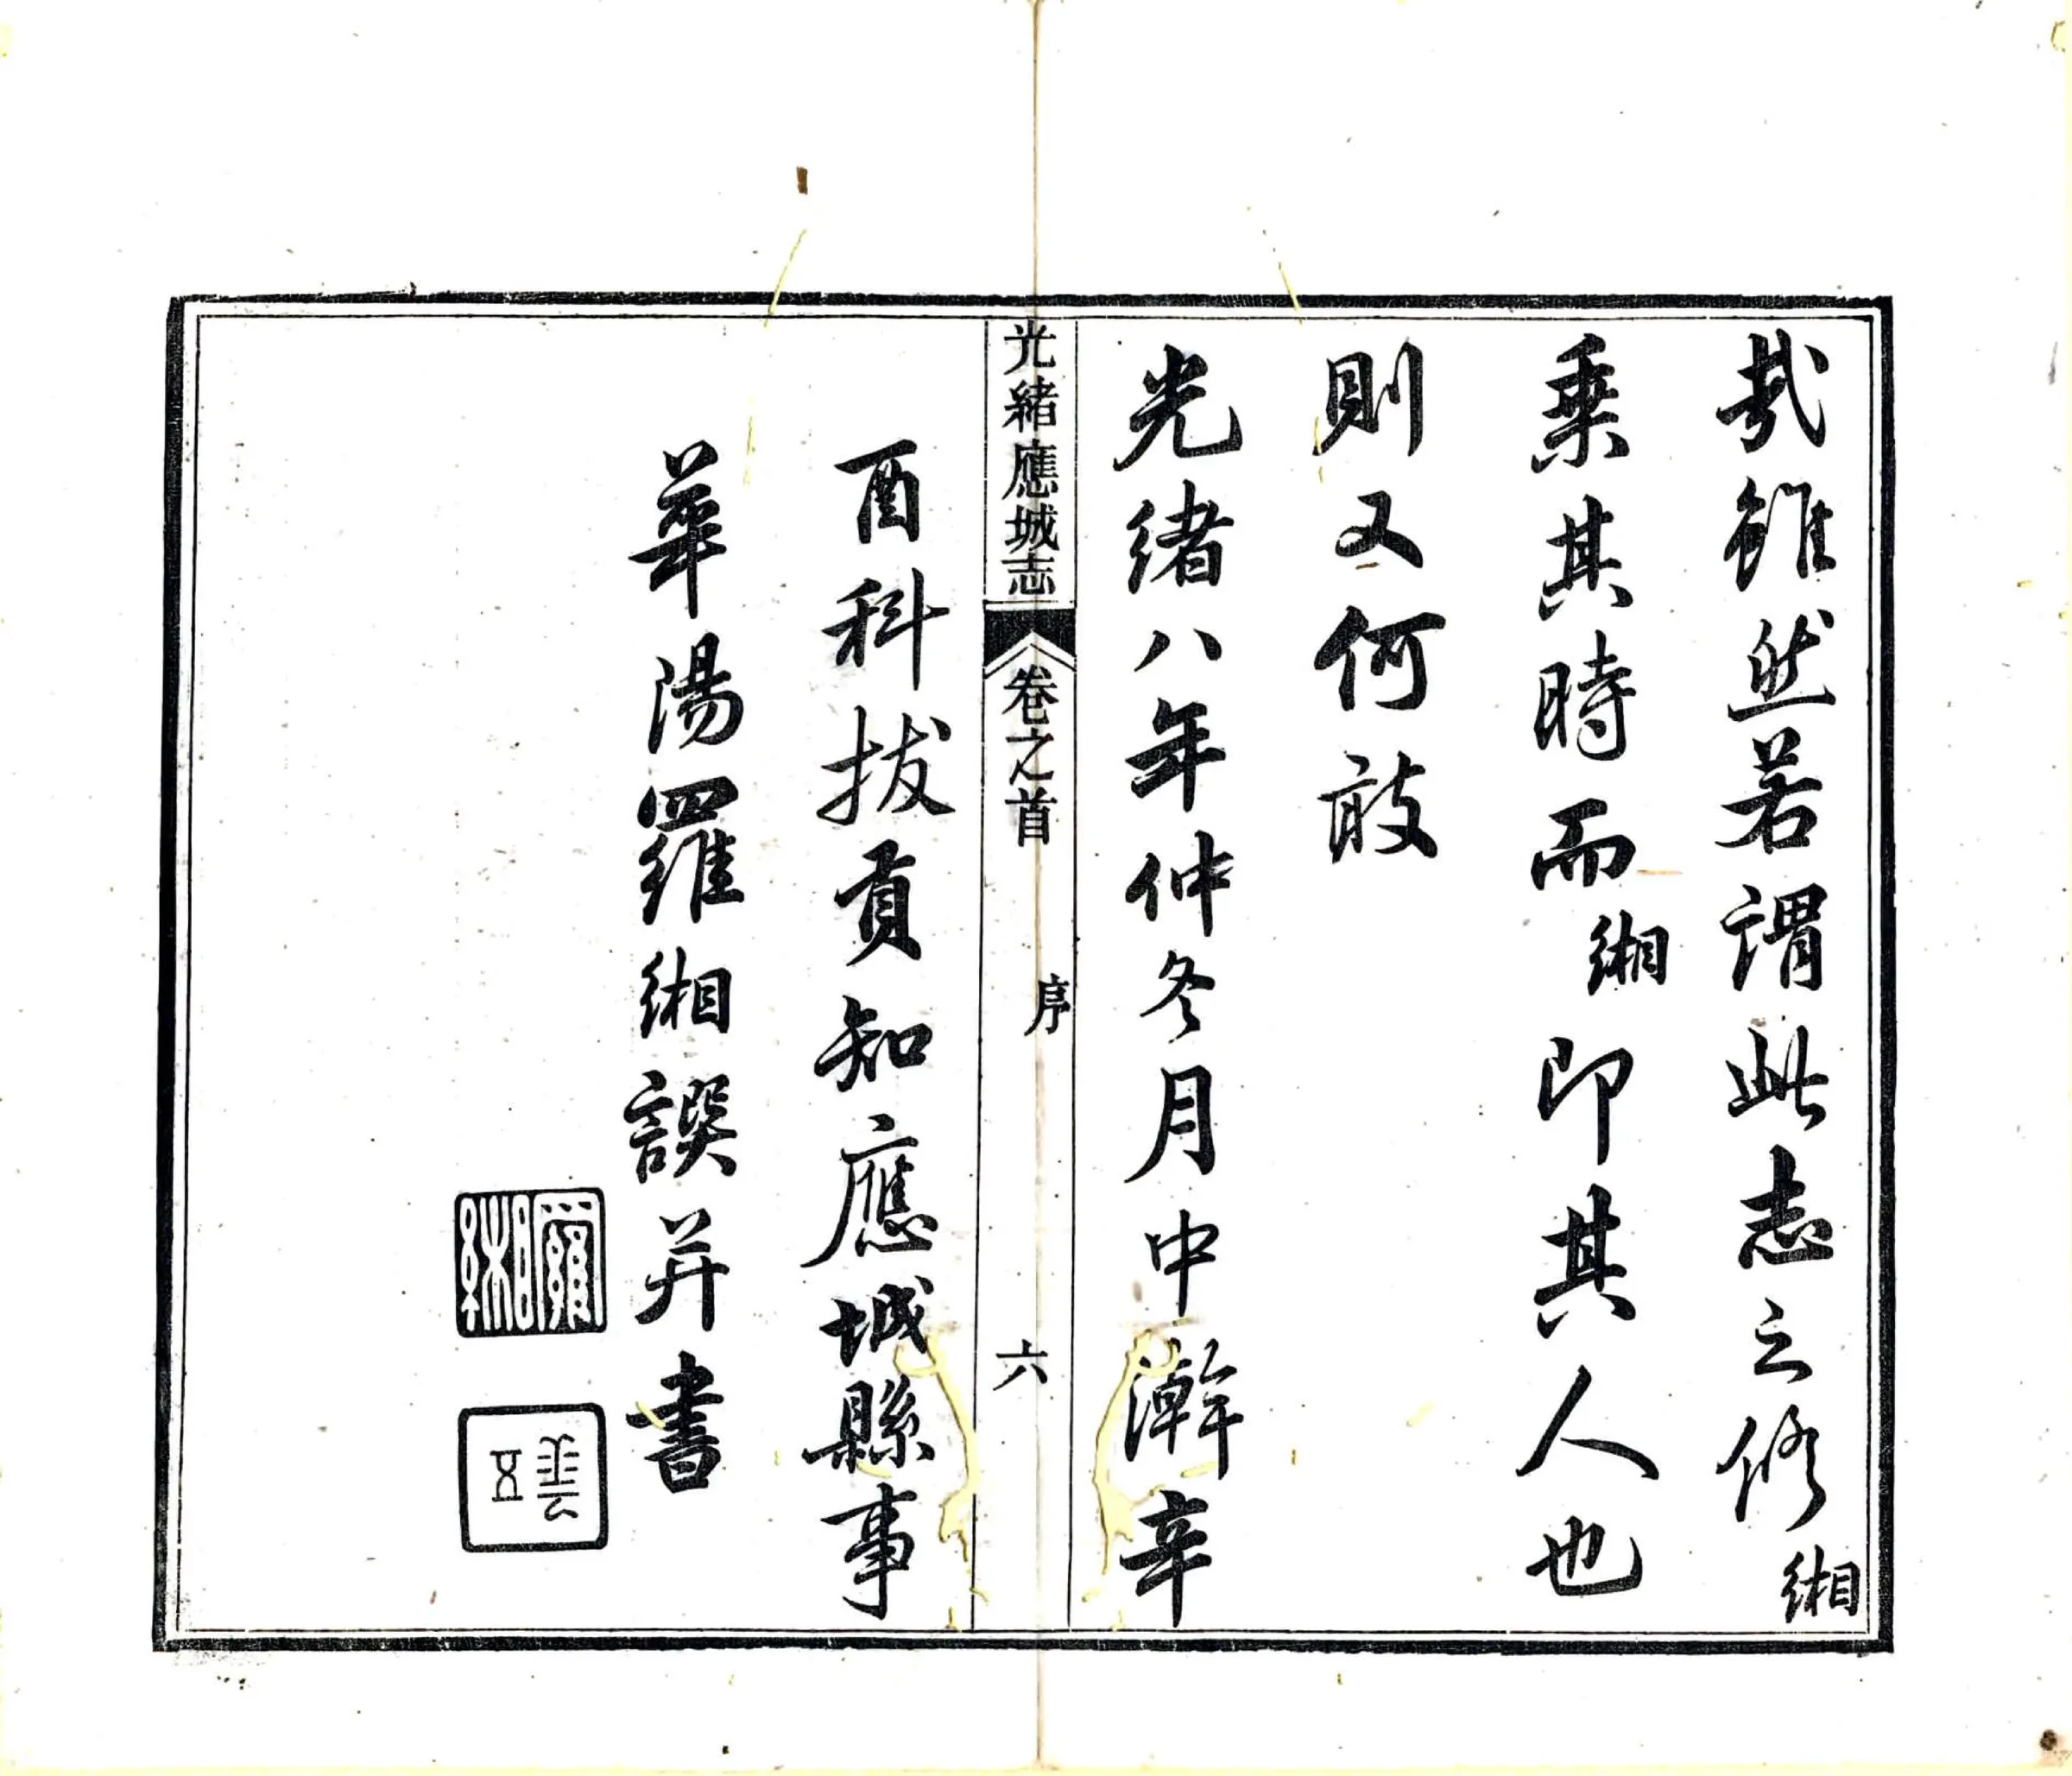 哉雖然若謂此志之修緗
乘其時而緗即其人也
則又何敢
光緒八年仲冬月中澣辛
光緒應城志
卷之首
序
六
酉科拔貢知應城縣事
華陽羅緗譔并書
羅緗